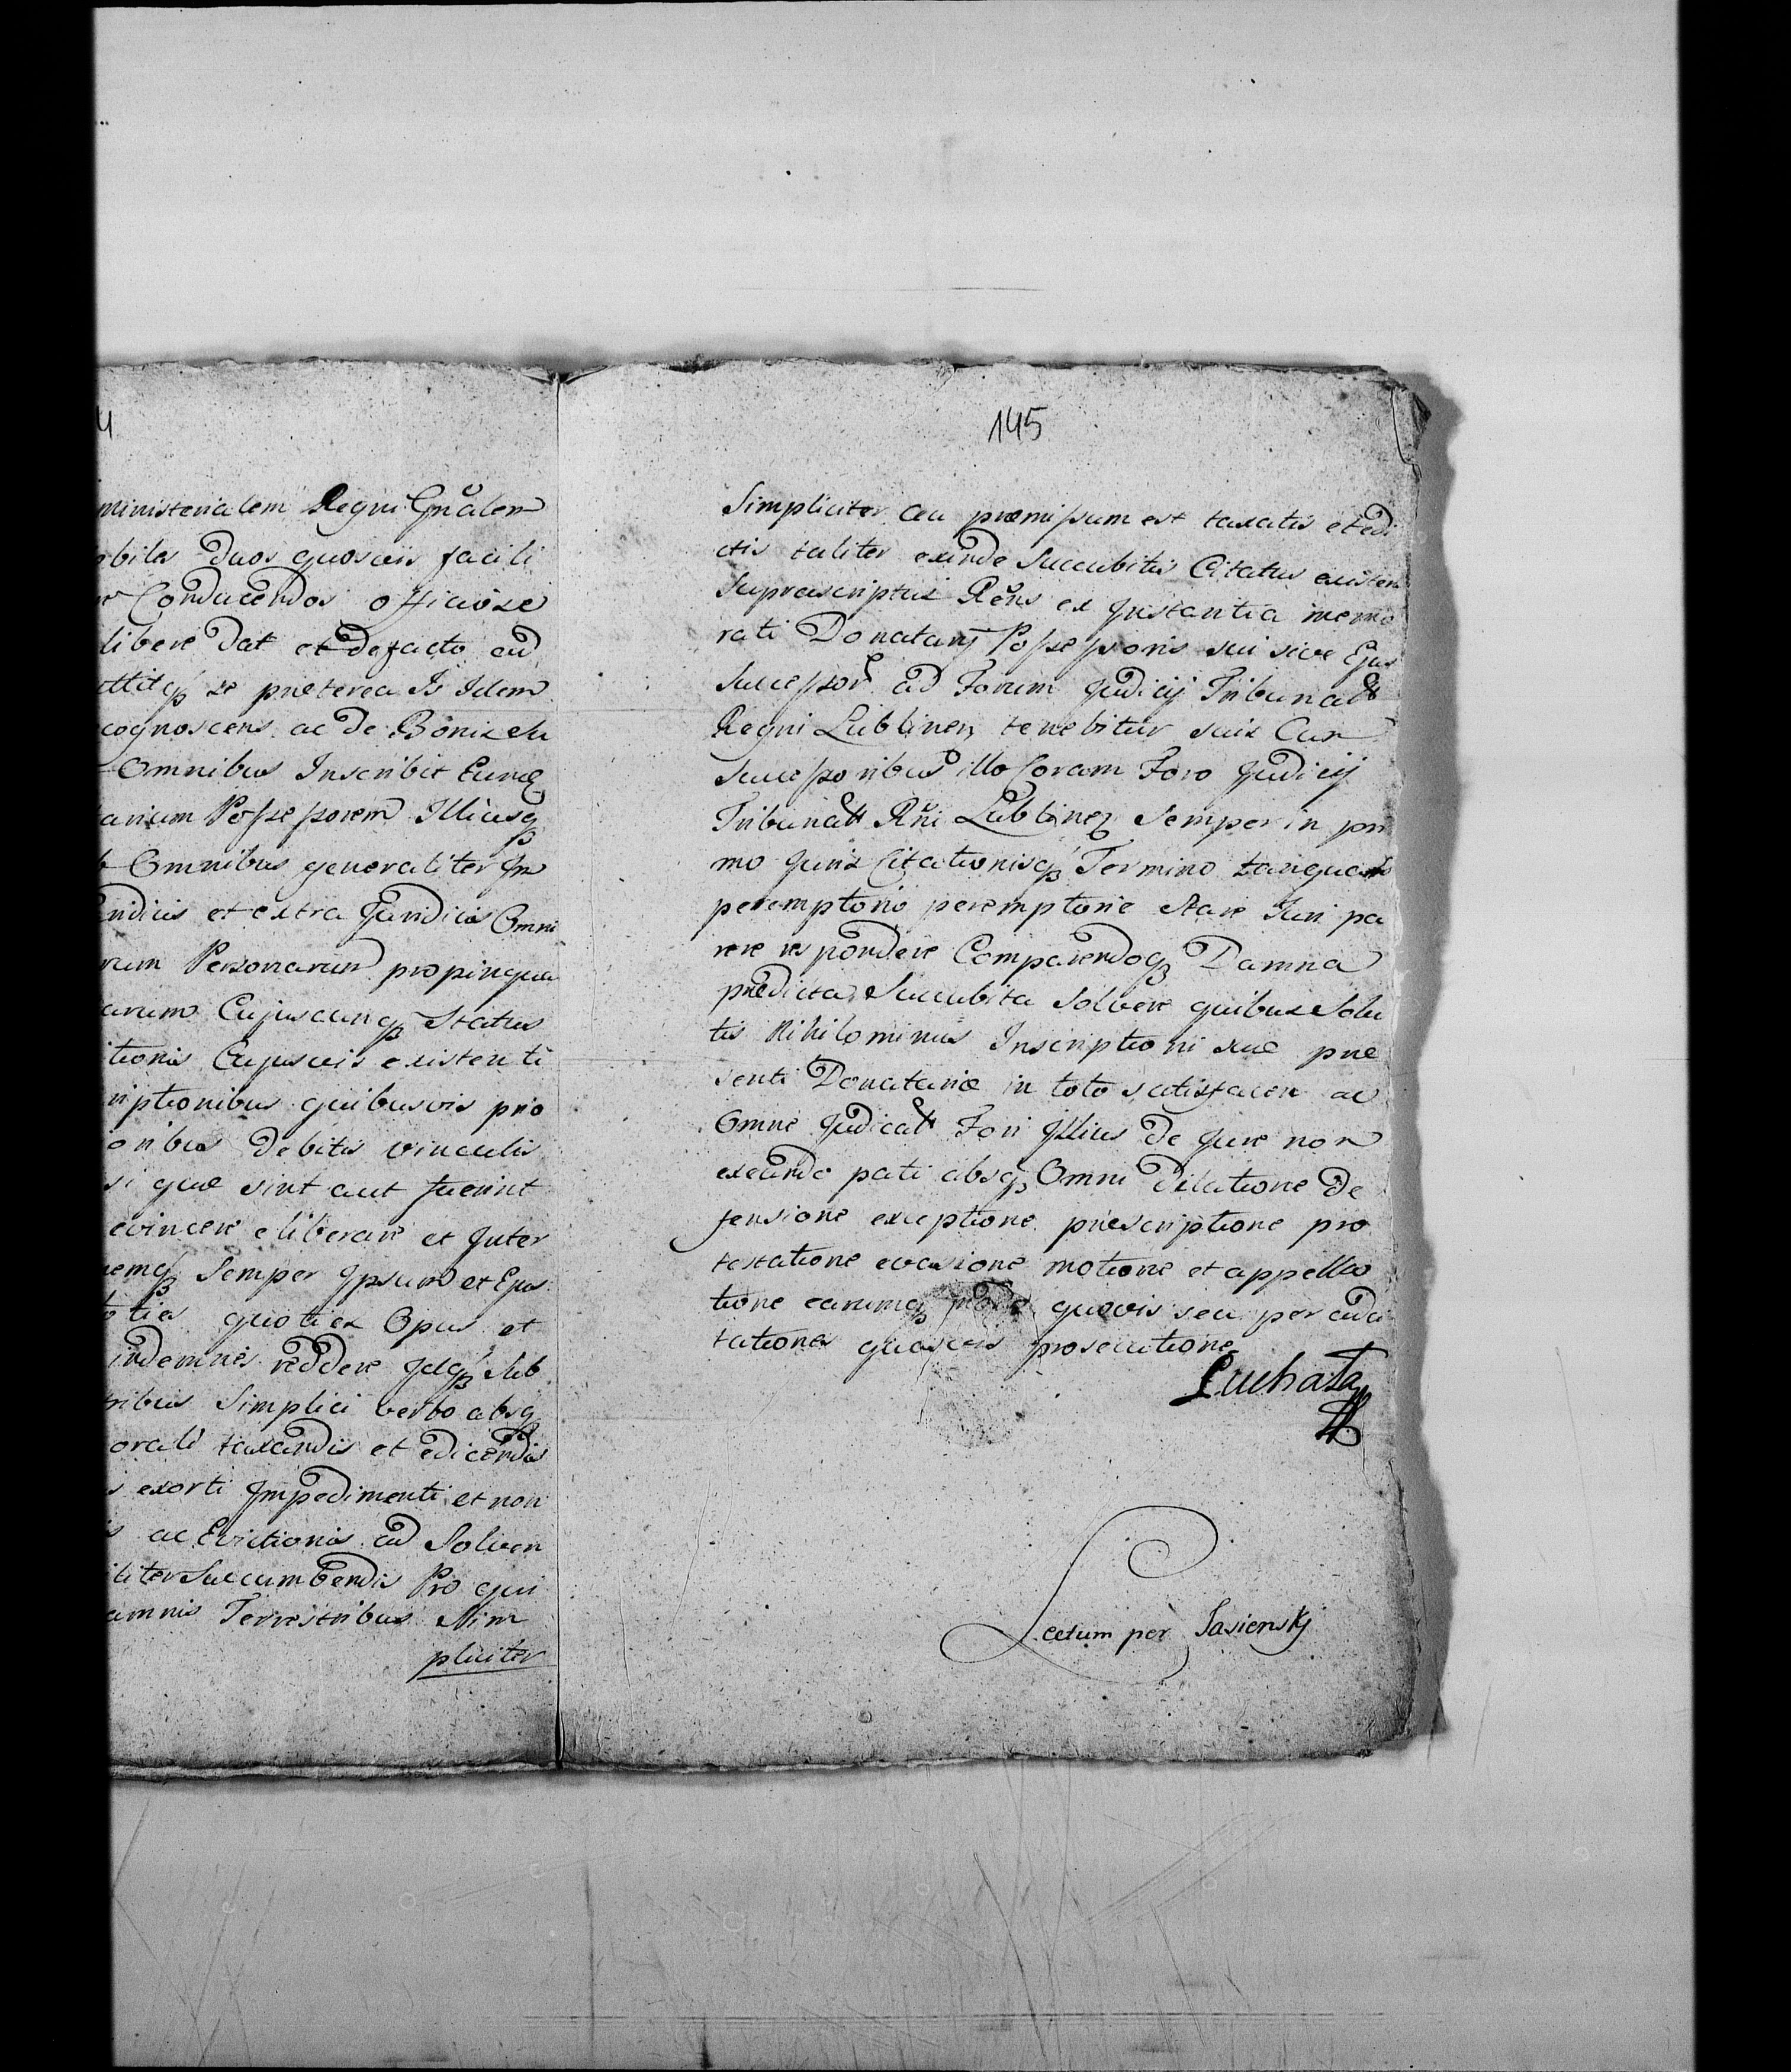 4
ministerialem Regni Gnalem
biles Duos quosvis facili
Conducendos officiose
libere Dat et defacto ad
ittitq se præterea Is Idem
cognoscens ac de Bonis su
Omnibus Inscribit Eund
arium Possessorem Illiusq
Omnibus generaliter In
ridicis et extra Juridicis Omni
rum Personarum propinqua
arum Cujuscunq Status
itionis Cujusvis existenti
riptionibus quibusvis prio
oribus Debitis vinculis
si quæ sint aut fuerint
evincere eliberare et Inter
nemq Semper Ipsum et Ejus
toties quoties Opus et
indemnes reddere Idq Sub
Simplici verbo absq
orali taxandis et edicendis
s exorti Impedimenti et non
ac Evictionis ad Solven
liter Succumbendis Pro qui
amnis Terrestribus Sim
pliciter
145
Simpliciter ceu præmissum est taxatis et edi
ctis taliter exinde Succubitis Citatus existen
Suprascriptus Rens ex Instantia memo
rati Donatarij Possessoris sui sive Ejus
Successor ad Forum Judicij Tribunalt
Regni Lublinen tenebitur suis Cum
Successoribus illo Coram Foro Judicij
Tribunalt Rni Lublinen Semper in pri
mo Juris Citationisq Termino tanquam
peremptorio peremptorie Stare Juri pa
rere respondere Comparendoq Damna
prædicta Succubita Solvere quibus Solu
tis Nihilominus Inscriptioni suæ præ
senti Donatariæ in toto satisfacere ac
Omne Judicatt Fori Illius de Jure non
exeundo pati absq Omni Dilatione De
fensione exceptione præscriptione pro
testatione evasione motione et appella
tione earumq modo quovis seu per adci
tationes quasvis prosecutione
Lectum per Jasienskj